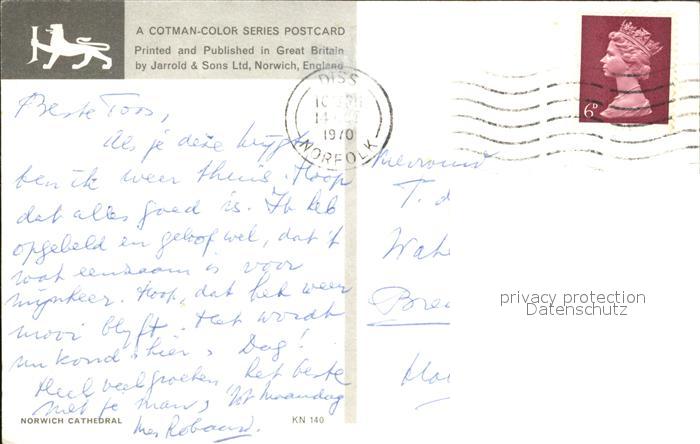 A COTMAN-COLOR SERIES POSTCARD
Printed and Published in Great Britain
by Jarrold & Sons Ltd, Norwich, England
DISS
1970
NORFOLK
6D
Beste Toos,
Als je deze krijgt
ben ik weer thuis. Hoop
dat alles goed is. Ik heb
opgebeld en geloof wel, dat 't
wat eenzaam is voor
mijnheer. Hoop, dat het weer
mooi blijft. Het wordt
nu koud hier. Dag!
Heel veel groeten, het beste
met je man, tot maandag
Mevrouw
T. d
Wate
Bre
Ho
privacy protection
Datenschutz
NORWICH CATHEDRAL
KN 140